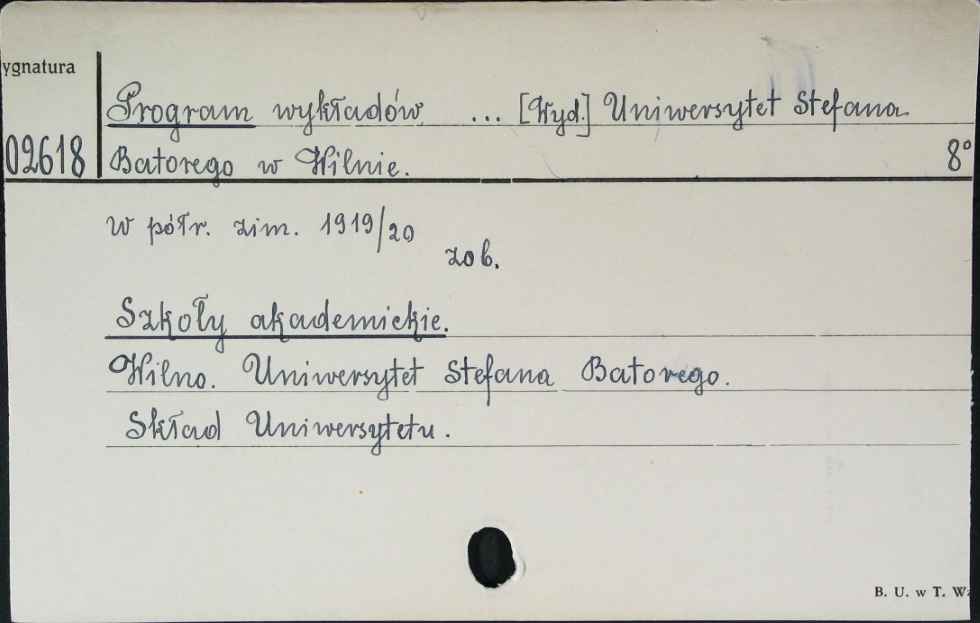 ygnatura
Program wykładów ... [Wyd.] Uniwersytet Stefana
02618 Batorego w Wilnie. 8°
W półr. zim. 1919/20
zob.
Szkoły akademickie.
Wilno. Uniwersytet Stefana Batorego.
Skład Uniwersytetu.
B. U. w T. W